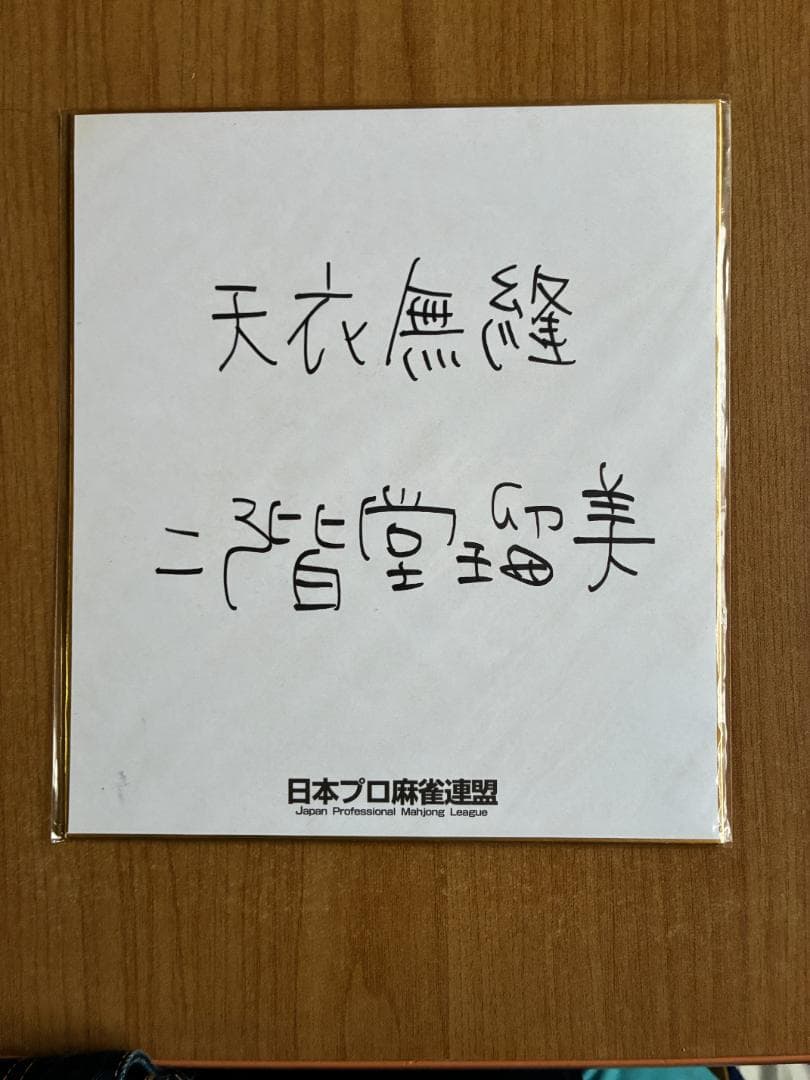 天衣無縫
二階堂瑠美
日本プロ麻雀連盟
Japan Professional Mahjong League